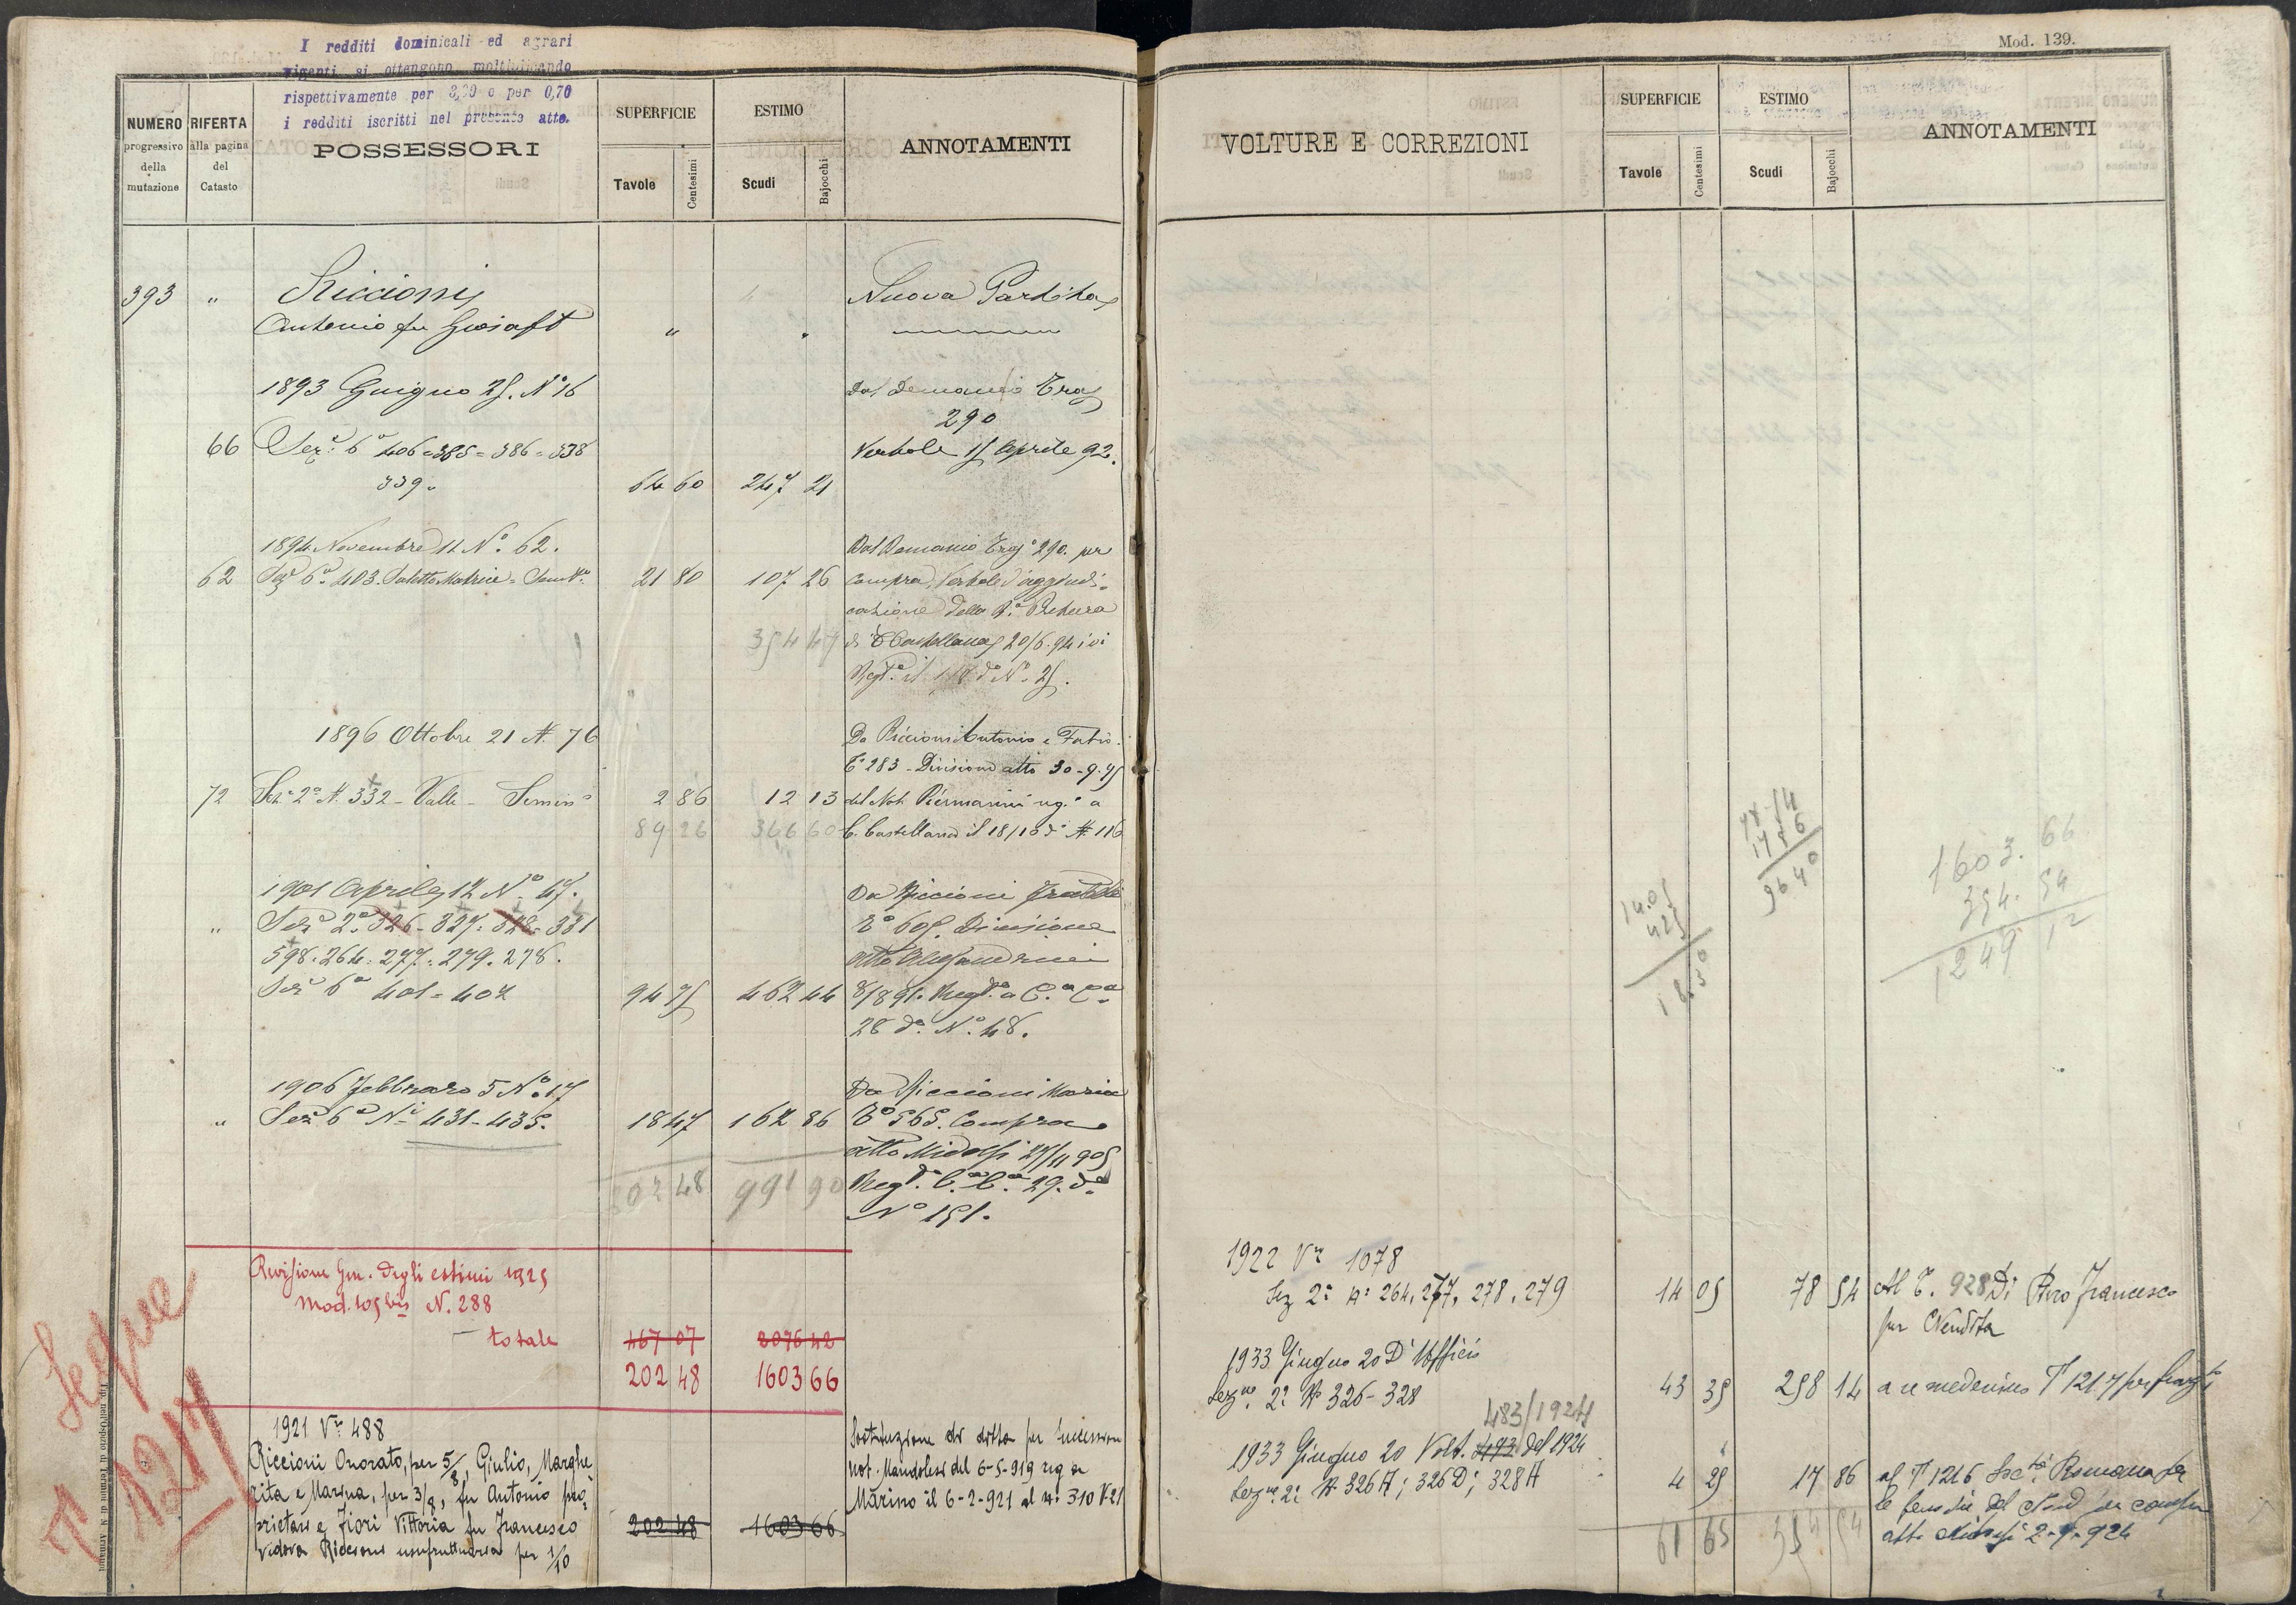 I redditi dominicali ed agrari
vigenti si ottengono moltiplicando
rispettivamente per 3,30 e per 0,70
i redditi iscritti nel presente atto.
NUMERO progressivo della mutazione
RIFERTA alla pagina del Catasto
POSSESSORI
SUPERFICIE
Tavole Centesimi
ESTIMO
Scudi Bajocchi
ANNOTAMENTI
393 " Riccioni Nuova Partita
Antonio fu " "
1893 Giugno 25. N° 16 Dal Demanio
290
66 Sez.e 6a 406=385=386=338 Verbale 15 Aprile 92.
339. 64 60 247 21
1894 Novembre 12 N°. 62. Dal Demanio 290. per
62 Sez.e 6a 403. 21 80 107 26 compra, Verbale d'aggiudi=
cazione della R.a Pretura
354 47 di C Castellana 20/6.94 ivi
1896 Ottobre 21 N. 76 Da Riccioni Antonio e
T° 283 - Divisione atto 30-9-95
72 Sez.e 2a N. 332 - Valle - Semin° 2 86 12 13 del Not. Piermarini reg.° a
89 26 366 60 C. Castellana il 18/10 d° N. 116
1901 Aprile 12 N° 47. Da Riccioni
" Sez.e 2a 326-327-328-331 T° 605. Divisione
598.264.277.279.278. atto
Sez.e 6a 401=402 94 75 462 44
28 d°. N°. 48.
1906 Febbraro 5 N°. 17 Da Riccioni Maria
" Sez.e 6a N.i 431-435. 18 47 162 86 T° 565. Compra
atto Midolfi 27/11 905
202 48 991 90 Reg.to C.a C.a 29. d°
N° 151.
Revisione Gen. degli estimi 1925
Mod. 105 bis N. 288
totale 467 07 2076 42
202 48 1603 66
Segue
T 1217
1921 Vra 488
Riccioni Onorato, per 5/8, Giulio, Marghe
rita e Marina, per 3/8, fu Antonio pro
prietari e Fiori Vittoria fu Francesco
Vedova Riccioni usufruttuaria per 1/10
202 48 1603 66
Sostituzione di ditta per successione
not. Mandolesi del 6-5-919 reg a
Marino il 6-2-921 al n: 310 V. 21
Mod. 139.
VOLTURE E CORREZIONI
SUPERFICIE
Tavole Centesimi
ESTIMO
Scudi Bajocchi
ANNOTAMENTI
78 54
17 86
96 40
14.05
425
18.30
1603. 66
354. 54
1249 12
1922 Vra 1078
Sez 2a N: 264, 277, 278, 279 14 05 78 54 Al T. 928 Di Piro Francesco
per Vendita
1933 Giugno 20 D'Ufficio
Sezne. 2a N 326-328 43 35 258 14 a se medesimo T 1217 per
483/1924
1933 Giugno 20 Volt. 493 del 1924
Sezne. 2a N 326A; 326D; 328A 4 25 17 86 al T 1216 Soctà Romana per
le ferrovie del Nord per compra
61 65 354 54 atto 2-9-924